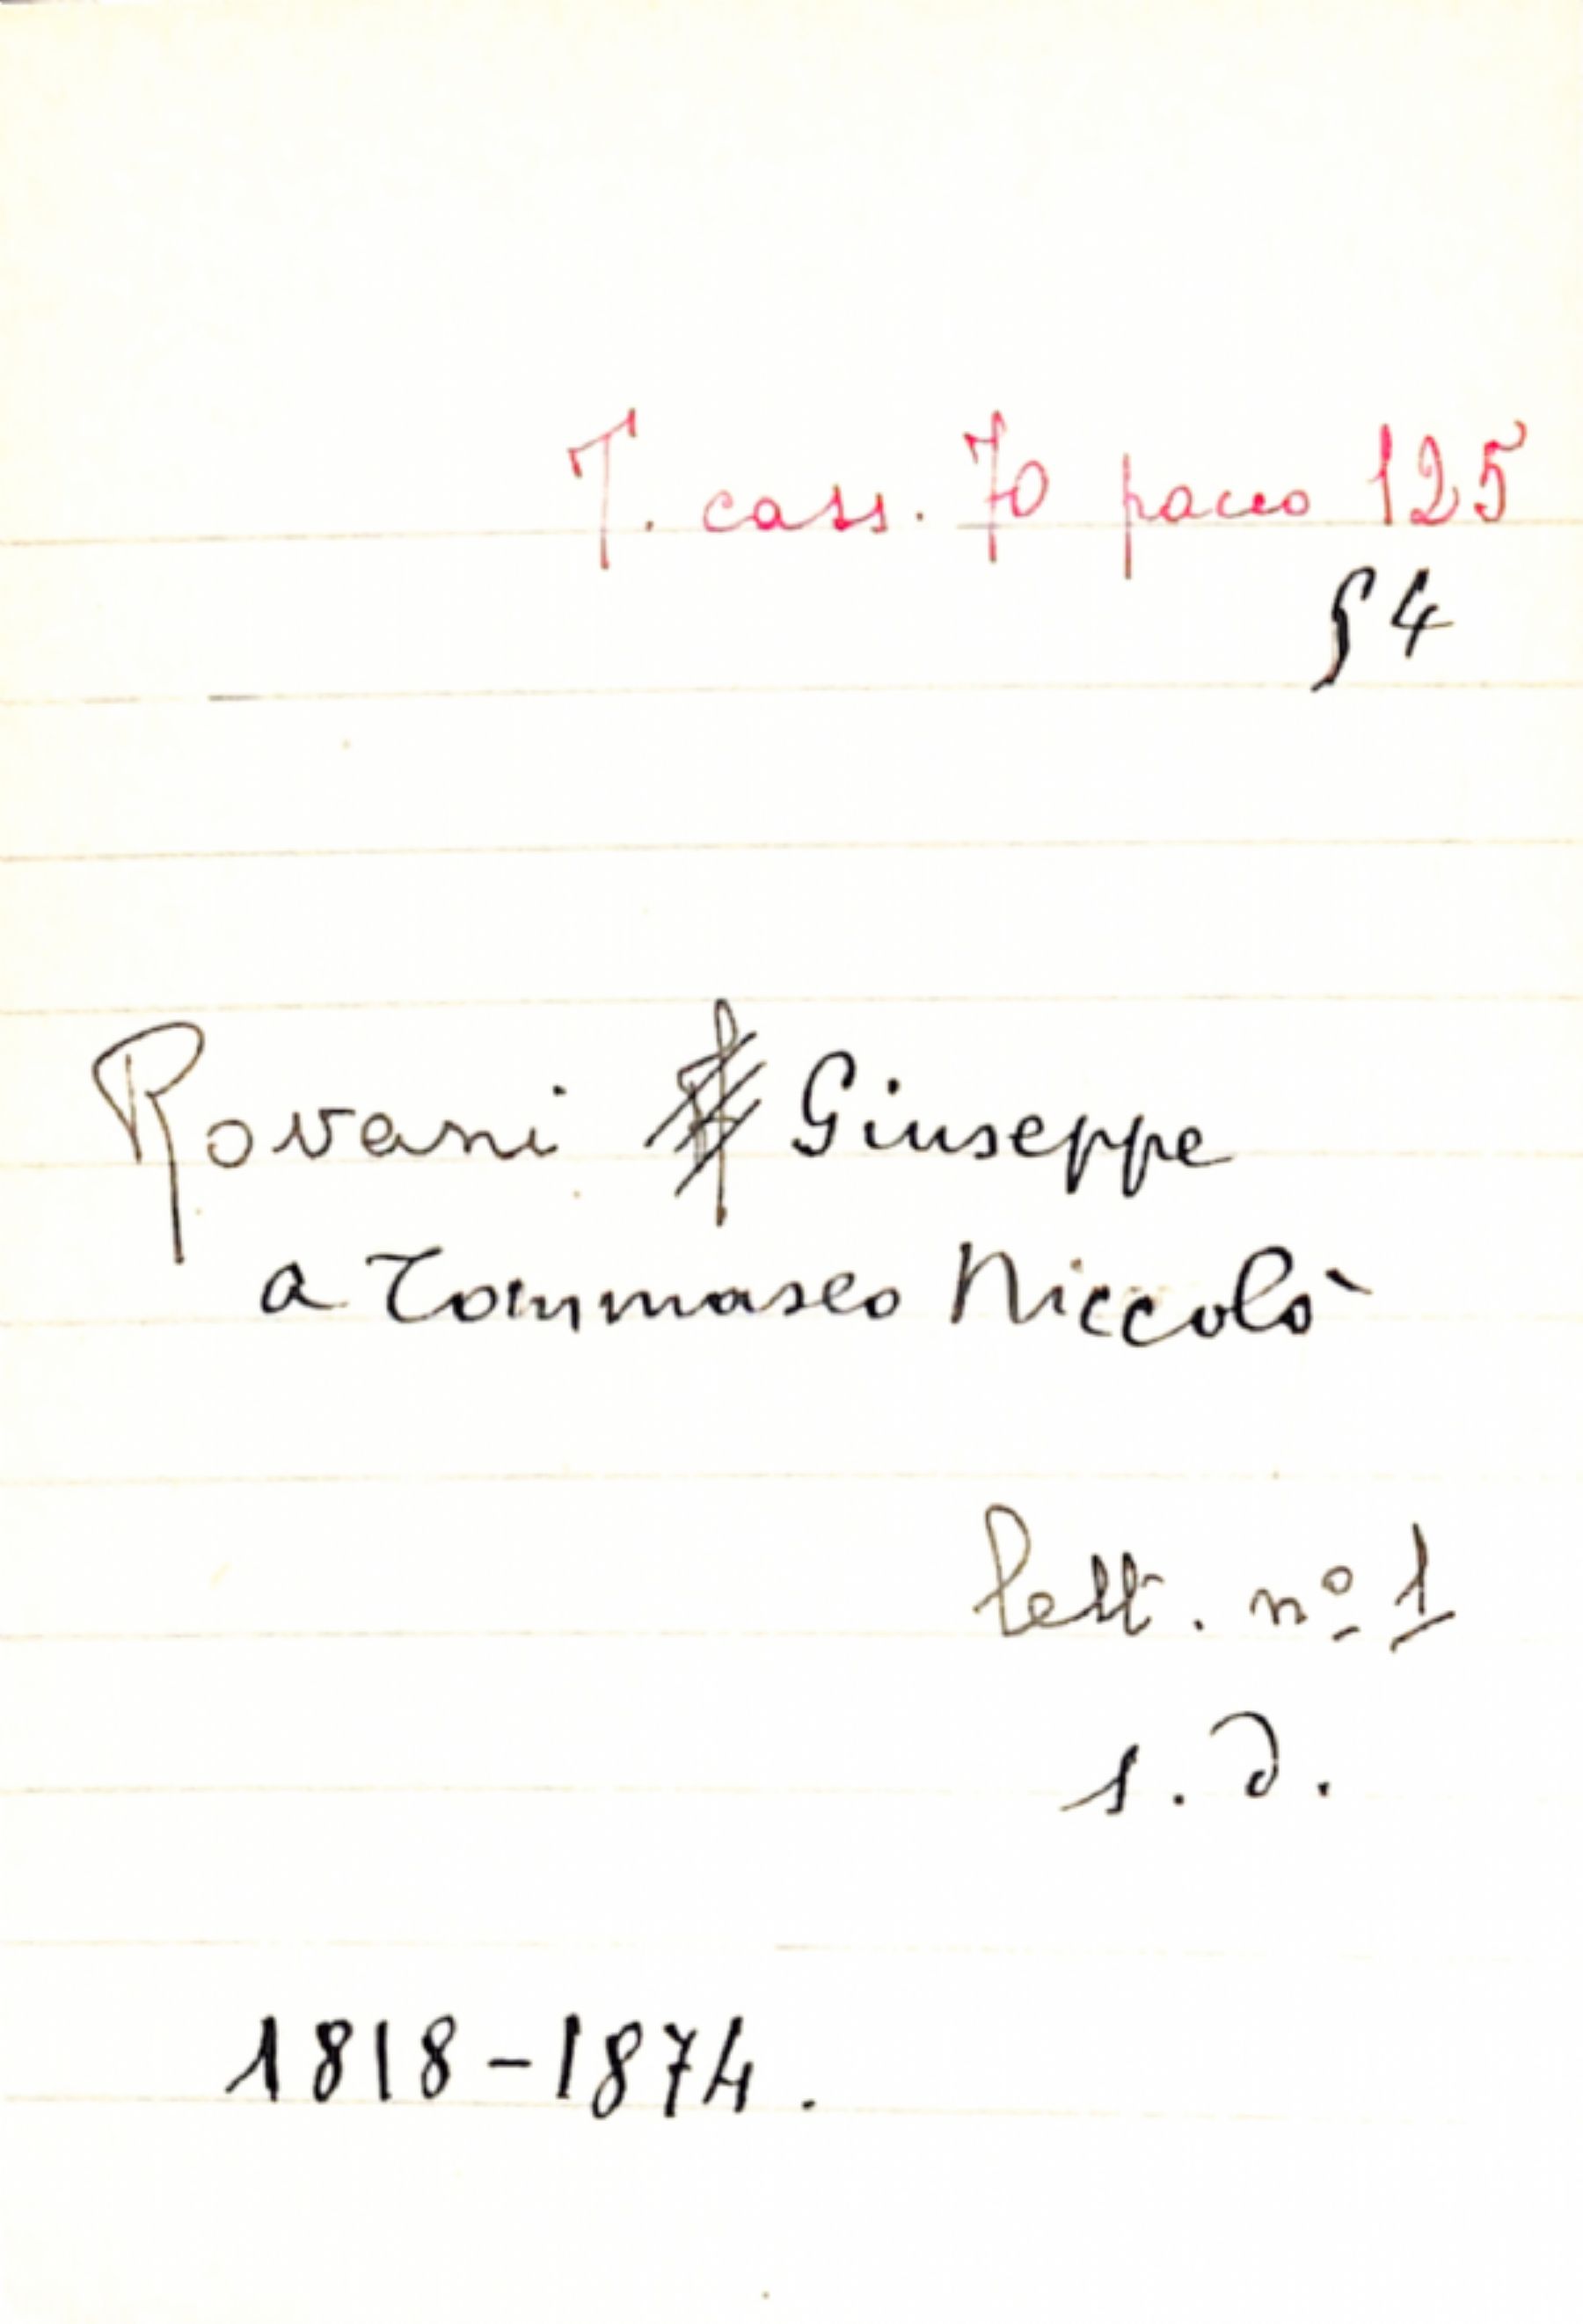 T. cass. 70 pacco 125
§ 4
Rovani Giuseppe
a Tommaseo Niccolò
lett. nº 1
s. d.
1818-1874.